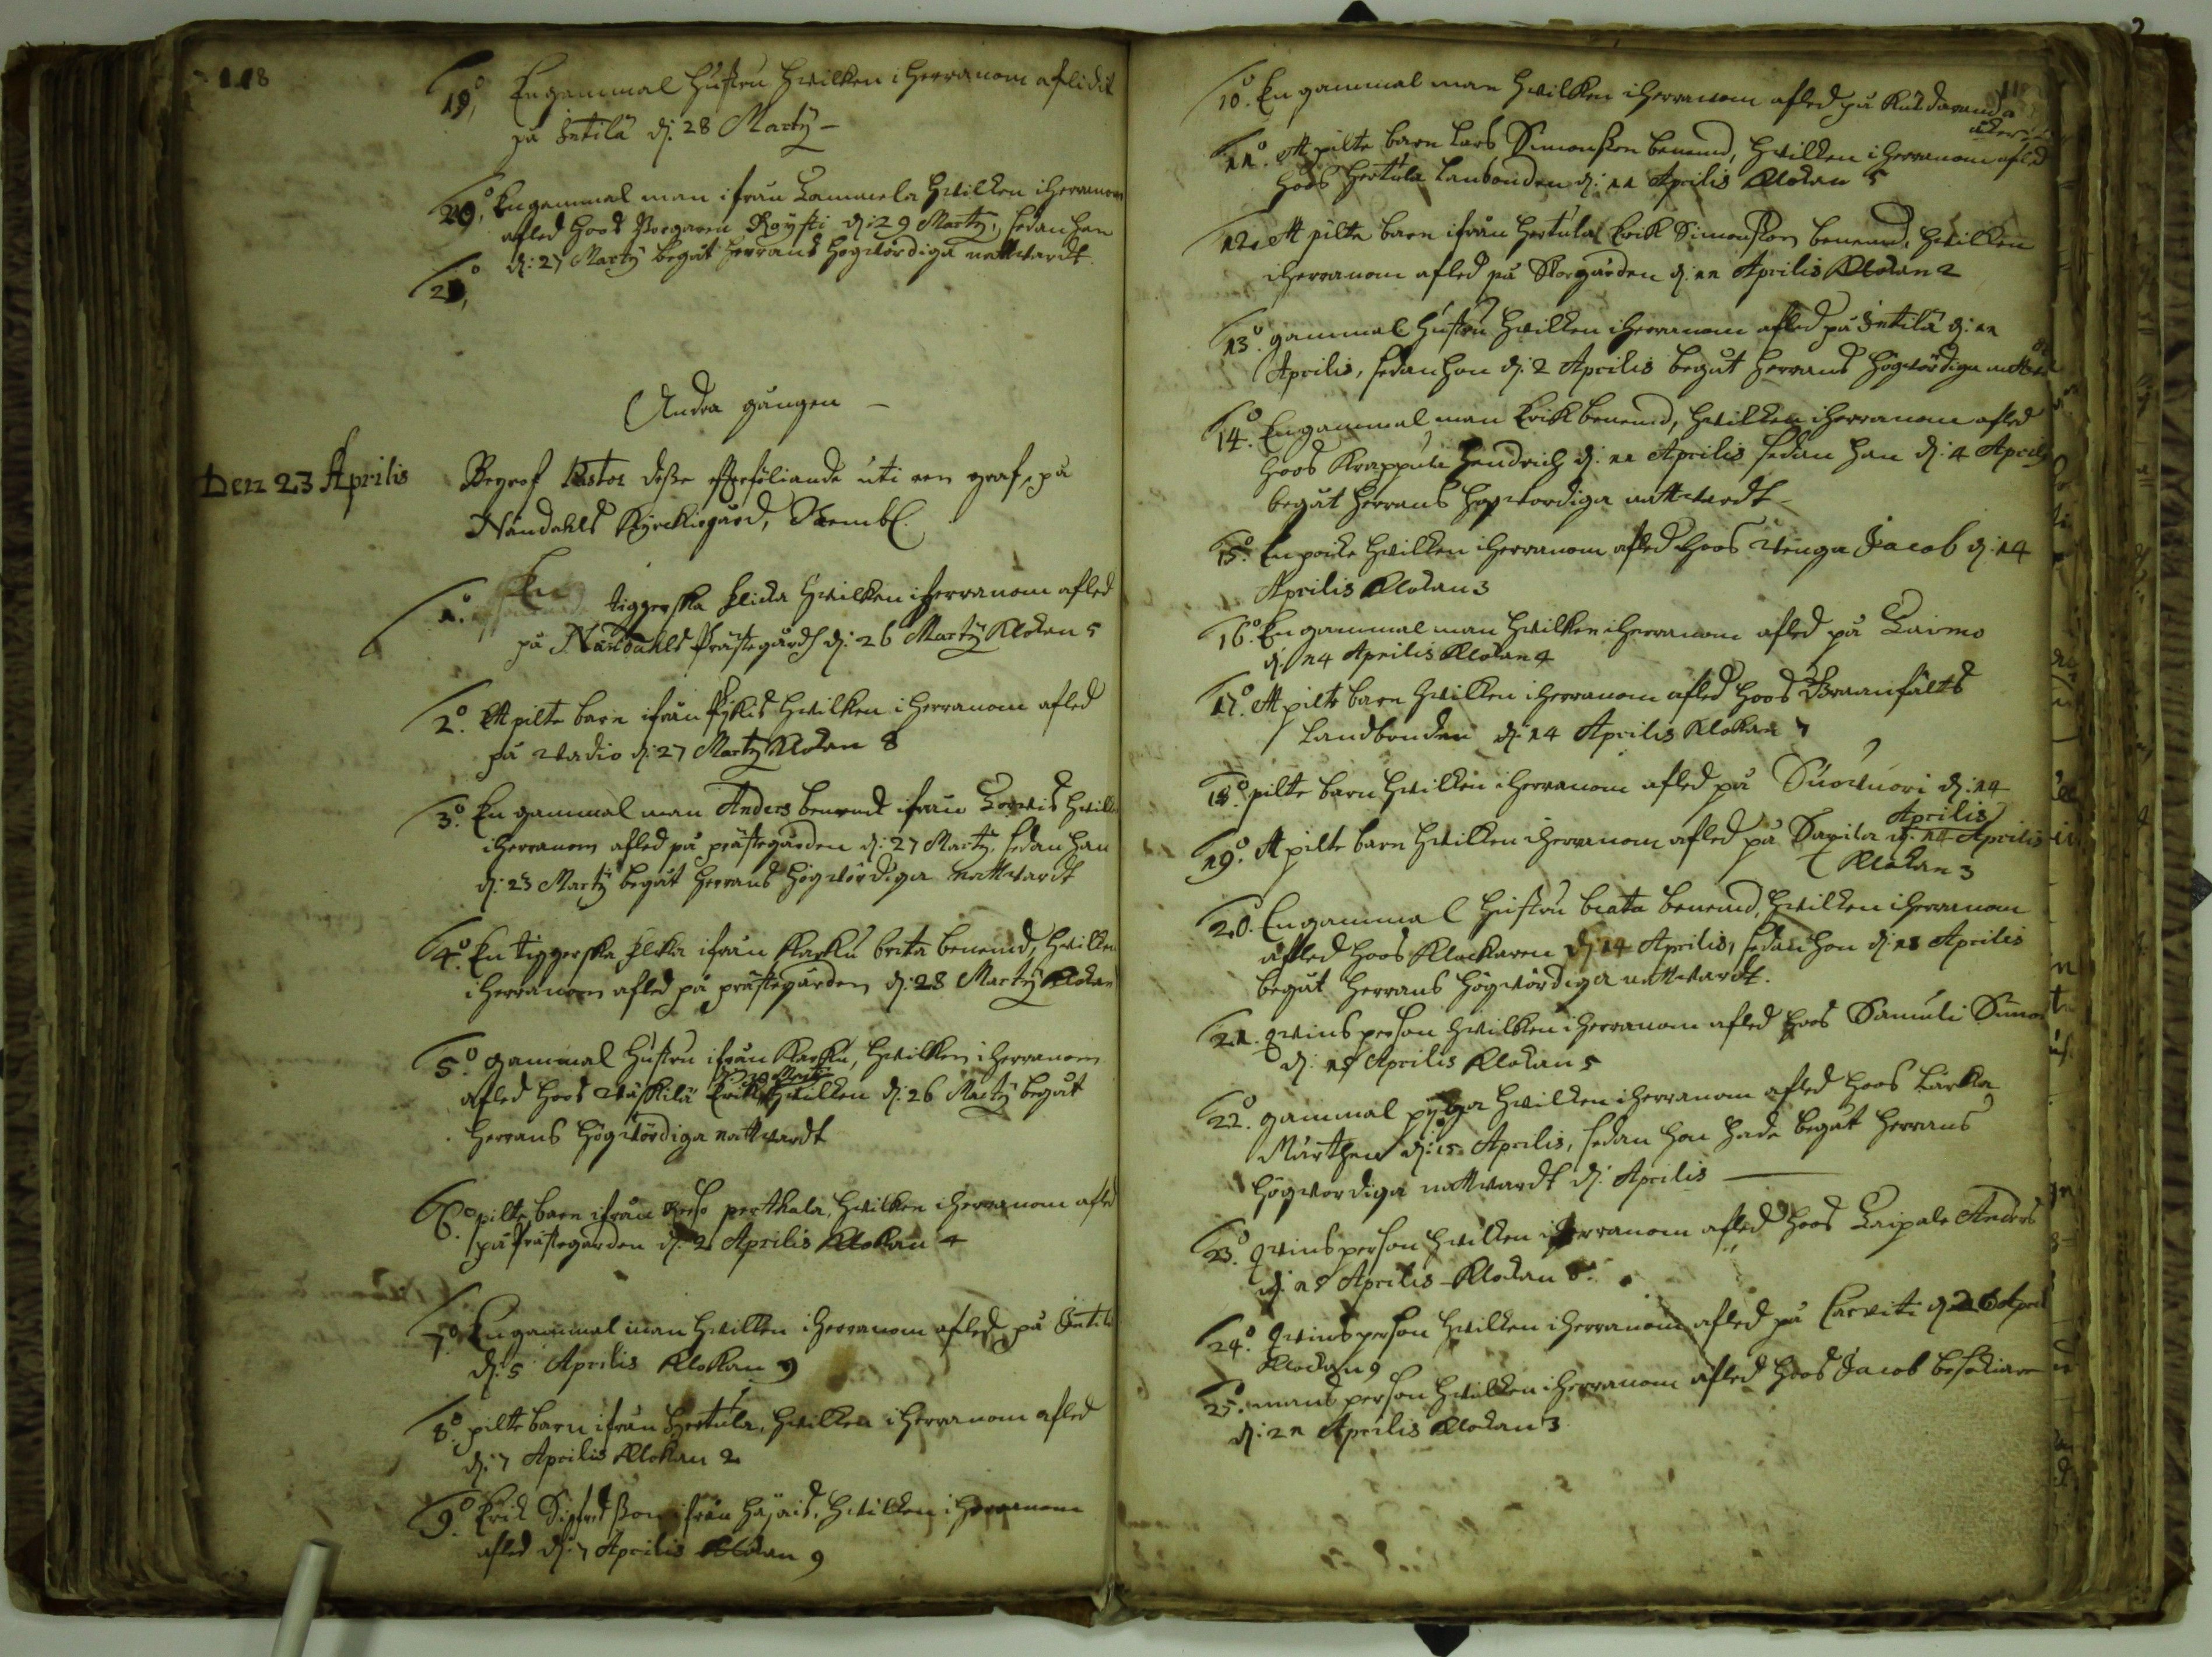 118
19. En gammal hustru hvilken i herranom aflidit
på Intilä d: 28 Martÿ –
20. En gammal man ifrån Lammela hvilken i herranom
afled hoos Borgaren Röysti d: 29 Martÿ, sedan han
d: 27 Martÿ begåt herrans högvördiga nattvardt.
21.
Andra gången –
Den 23 Aprilis
Begrof Pastor desse efterföliande uti een graf, på
Nåndahls Kyrckiogård,
1. En tiggerska flicka hvilken i herranom afled
på Nåndahls Prästegård d: 26 Martÿ Klockan 5
2. Ett pilte barn ifrån hvilken i herranom afled
på Wadio d: 27 Martÿ Klockan 8
3. En gammal man Anders benemd ifrån hvilken
i herranom afled på prästegården d: 27 Martÿ. sedan han
d: 23 Martÿ begåt herrans högvördiga nattvardt
4. En tiggerska flicka ifrån Karku brita benemd, hvilken
i herranom afled på prästegården d: 28 Martÿ Klockan
5. gammal hustru ifrån Karku, hvilken i herranom
afled hoos Wäskilä Erik hvilken d: 26 Martÿ begåt
herrans högvördiga nattvardt
6. pilte barn ifrån perthala, hvilken i herranom afled
på Prästegården d: 2 Aprilis Klockan 4
7. En gammal man hvilken i herranom afled på Intilä
d: 5 Aprilis Klockan 9
8. pilte barn ifrån Hertula, hvilken i herranom afled
d: 7 Aprilis Klockan 2
9. Erik Sigfredsson ifrån hvilken i herranom
afled d: 7 Aprilis Klockan 9
10. En gammal man hvilken i herranom afled på
11. Ett pilte barn Lars Simonsson benemd, hvilken i herranom afled
hoos Hertula Lanbonden d: 11 Aprilis Klockan 5
12. Ett pilte barn ifrån Hertula Erik Simonsson benemd, hvilken
i herranom afled på Storgården d: 11 Aprilis Klockan 2
13. gammal hustru hvilken i herranom afled på Intilä d: 11
Aprilis, sedan hon d: 2 Aprilis begåt herrans högvördiga nattvard
14. En gammal man Erik benemd, hvilken i herranom afled
hoos Krappula Hendrich d: 11 Aprilis sedan han d: 4 Aprilis
begåt herrans högvördiga nattvardt
15. En poicke hvilken i herranom afled hoos Wänga Jacob d: 14
Aprilis Klockan 3
16. En gammal man hvilken i herranom afled på Lairmo
d: 14 Aprilis Klockan 4
17. Ett pilte barn hvilken i herranom afled hoos Braanfälts
Landbonden d: 14 Aprilis Klockan 7
18. pilte barn hvilken i herranom afled på Suovuori d: 14
Aprilis
19. Ett pilte barn hvilken i herranom afled på Savila d: 14 Aprilis
Klockan 3
20. En gammal hustru beata benemd, hvilken i herranom
afled hoos Klockaren d: 14 Aprilis, sedan hon d: 13 Aprilis
begåt herrans högvördiga nattvardt.
21. qvins person hvilken i herranom afled hoos Samuli Simon
d: 15 Aprilis Klockan 5
22. gammal pyga hvilken i herranom afled hoos Lärka
Mårthen d: 15 Aprilis, sedan hon hade begåt herrans
högvördiga nattvardt d: Aprilis
23. qvins person hvilken i herranom afled hoos Laipale Anders
d: 18 Aprilis Klockan 8.
24. qvins person hvilken i herranom afled på Carviti d: 20 April
Klockan 9
25. mans person hvilken i herranom afled hoos Jacob besökiare
d: 21 Aprilis Klockan 3